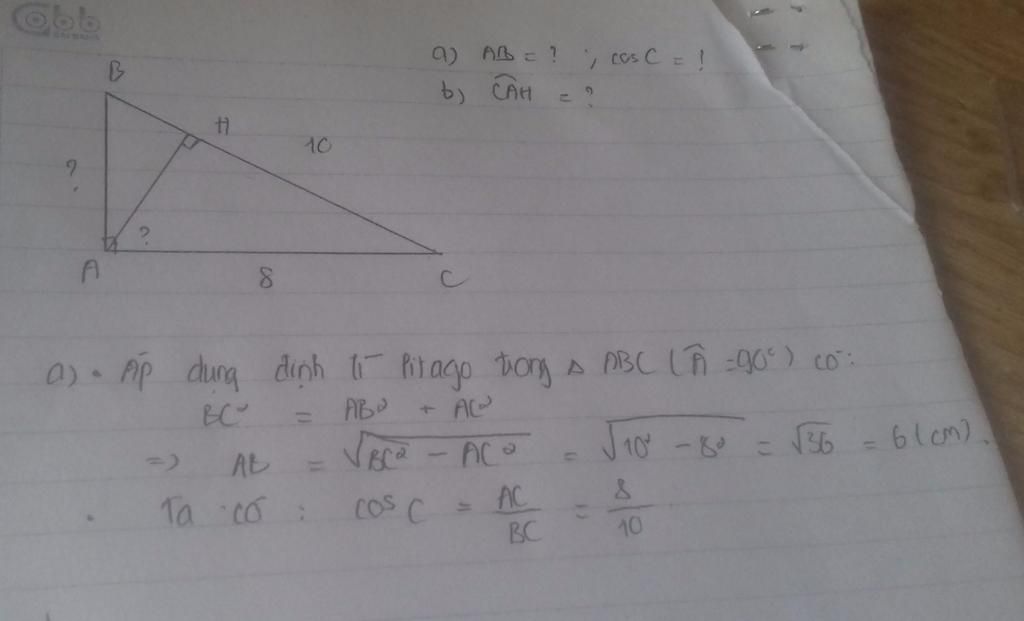 a) AB = ? ; cos C = !
b) CAH = ?
B
H
10
?
?
A
8
C
a) • Áp dụng định lí Pitago trong △ ABC (Â = 90°) có:
BC² = AB² + AC²
=> AB = √BC² - AC² = √10² - 8² = √36 = 6 (cm).
• Ta có : cos C = AC/BC = 8/10